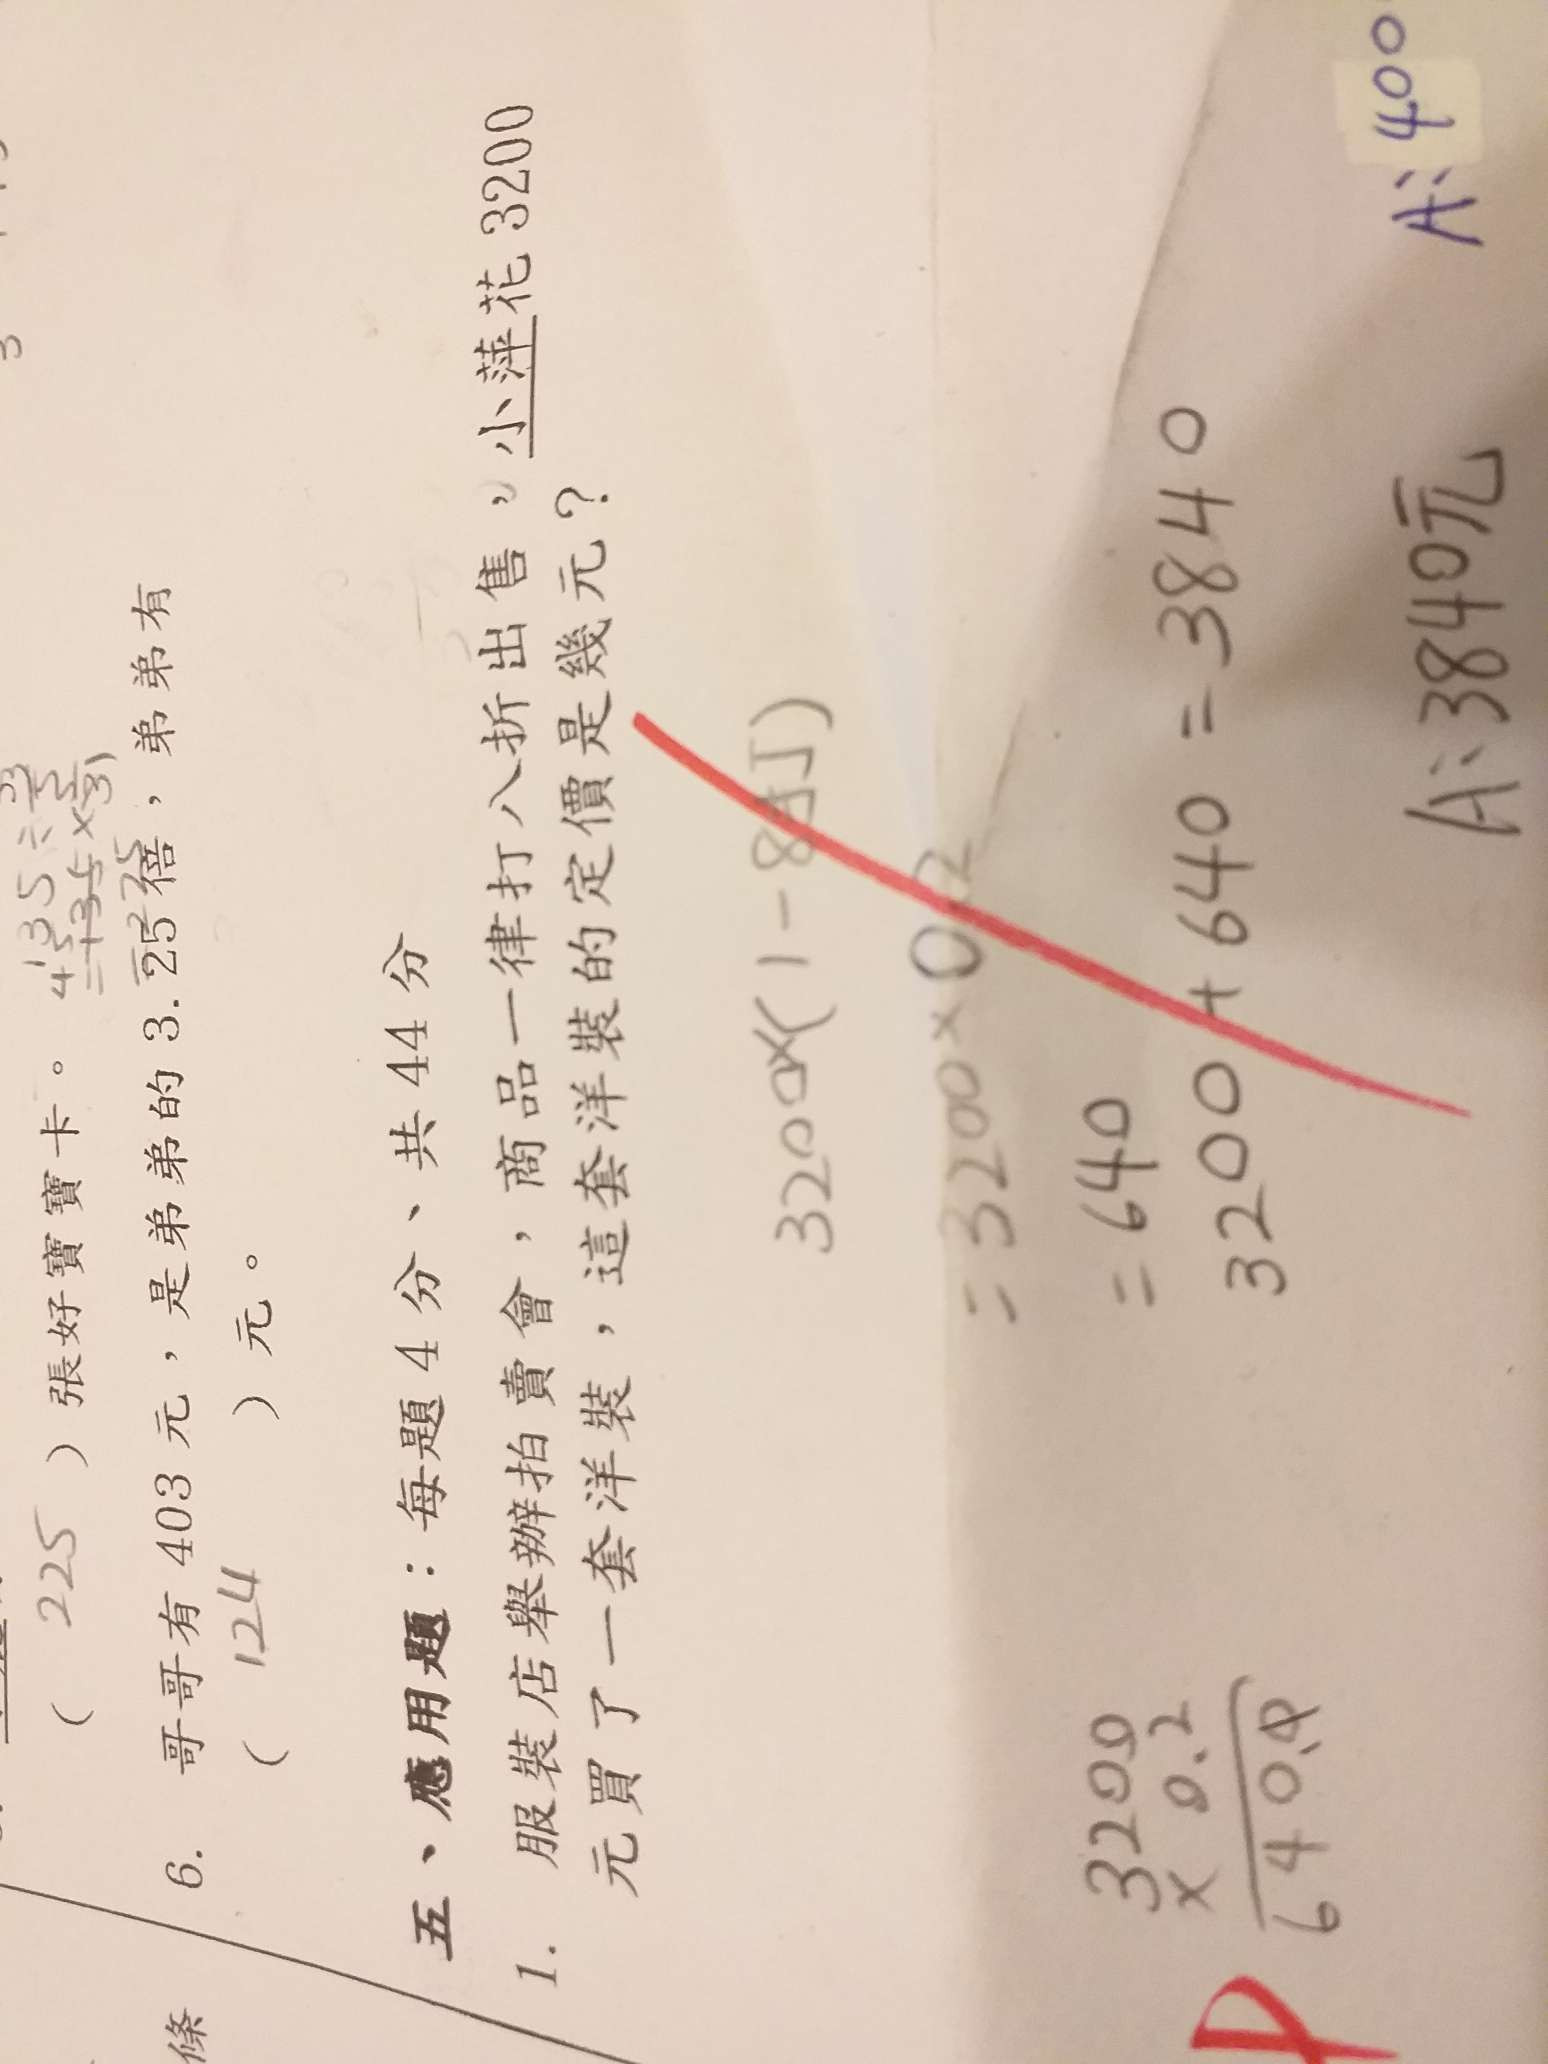 ( 225 ) 張好寶寶卡。
6. 哥哥有 403 元，是弟弟的 3.25 倍，弟弟有
( 124 ) 元。
五、應用題：每題 4 分、共 44 分
1. 服裝店舉辦拍賣會，商品一律打八折出售，小萍花 3200
元買了一套洋裝，這套洋裝的定價是幾元？
3200×(1-8折)
=3200×0.2
=640
3200+640=3840
3200
×0.2
640.0
A:3840元
A:400
條